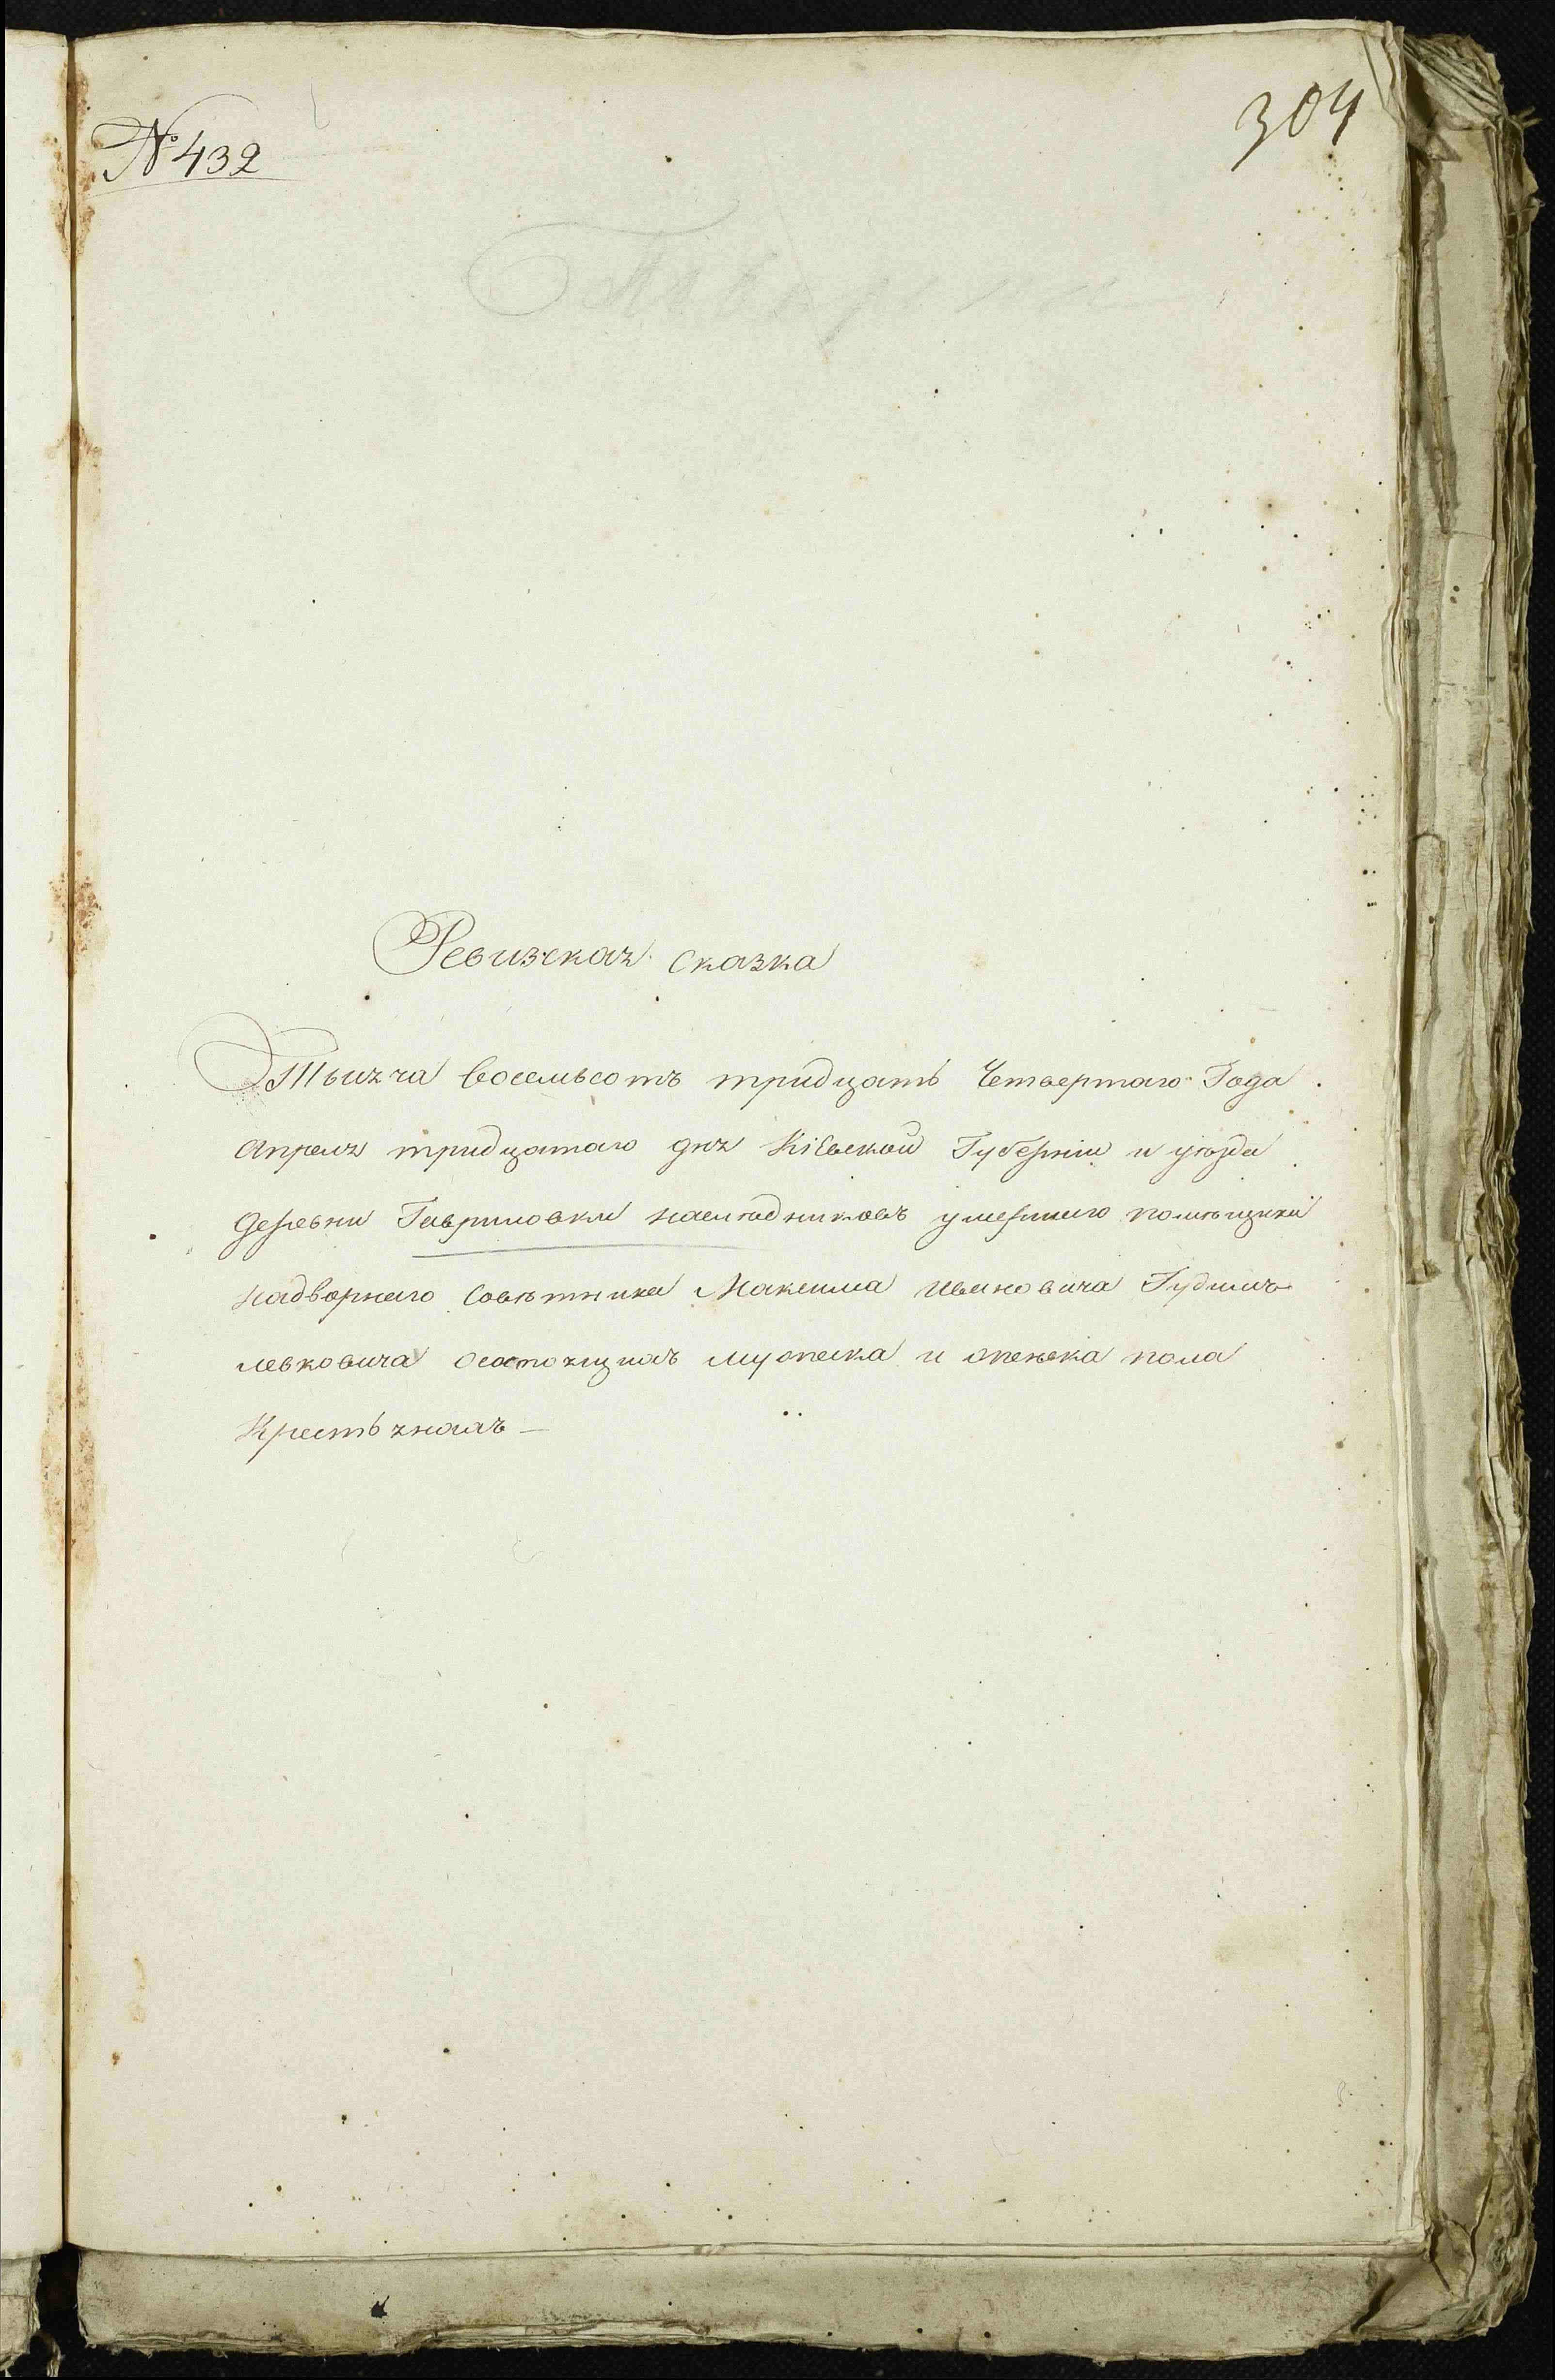 № 432
304
Ревизская сказка
Тысяча восемьсотъ тридцать Четвертаго Года
Апреля тридцатаго дня Кіевской Губерніи и уѣзда
Деревни Гавриловки наслѣдниковъ умершаго помѣщика
надворнаго Совѣтника Максима Ивановича Гудимъ
левковича о состоящихъ мужеска и женска пола
Крестьянахъ —